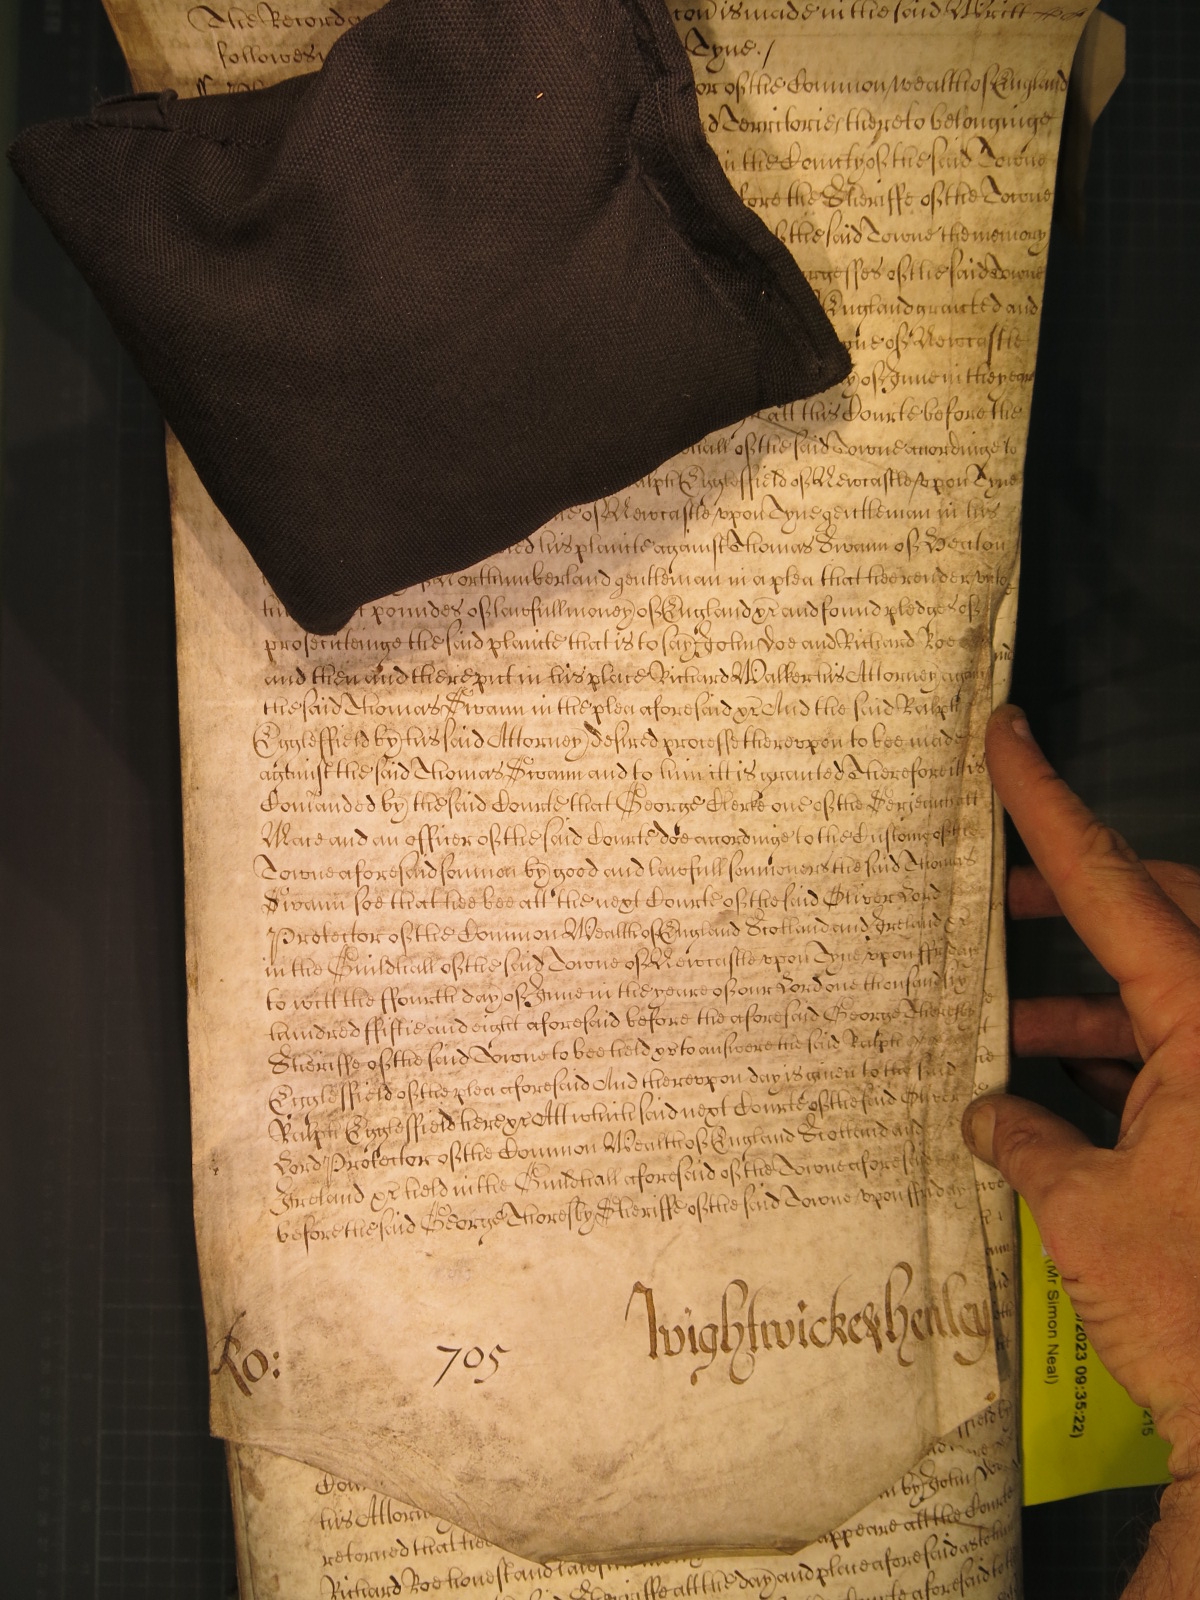 The Record con is made in the said Writt
followes Tyne./
or of the Common wealth of England
d Territories thereto belonginge
in the County of the said Towne
fore the Sheriffe of the Towne
of the said Towne the memory
urgesses of the said Towne
England graunted and
yne of Newcastle
y of June in the yeare
att this Courte before the
hall of the said Towne accordinge to
alph Egglesffield of Newcastle upon Tyne
ne of Newcastle upon Tyne gentleman in his
ed his plainte against Thomas Swann of Heaton
Northumberland gentleman in a plea that hee render unto
poundes of lawfull money of England xr and found pledges of
prosecuteinge the said plainte that is to say John Doe and Richard Roe
and then and there put in his place Richard Walker his Attorney against
the said Thomas Swann in the plea aforesaid xr And the said Ralph
Egglesffield by his said Attorney desired processe thereupon to bee made
against the said Thomas Swann and to him itt is granted Therefore itt is
Comanded by the said Courte that George Clerke one of the Serjeants att
Mace and an officer of the said Courte doe accordinge to the Custome of the
Towne aforesaid somon by good and lawfull somoners the said Thomas
Swann soe that hee bee att the next Courte of the said Oliver Lord
Protector of the Common Wealth of England Scotland and Ireland xr
in the Guildhall of the said Towne of Newcastle upon Tyne upon ffryday
to witt the ffourth day of June in the yeare of our Lord one thousand six
hundred ffiftie and eight aforesaid before the aforesaid George Thoresby
Sheriffe of the said Towne to bee held xr to answere the said Ralph
Egglesffield of the plea aforesaid And thereupon day is given to the said
Ralph Egglesffield here xr Att which said next Courte of the said Oliver
Lord Protector of the Common Wealth of England Scotland and
Ireland xr held in the Guildhall aforesaid of the Towne aforesaid
before the said George Thoresby Sheriffe of the said Towne upon ffriday
Ro: 705 Wightwicke & Henley
his Attorney by John Doe
returned that hee appeare att the Courte
Richard Roe honest and lawfull
Sheriffe att the day and place aforesaid as to him
Courte aforesaid to
(Mr Simon Neal)
/2023 09:35:22)
215